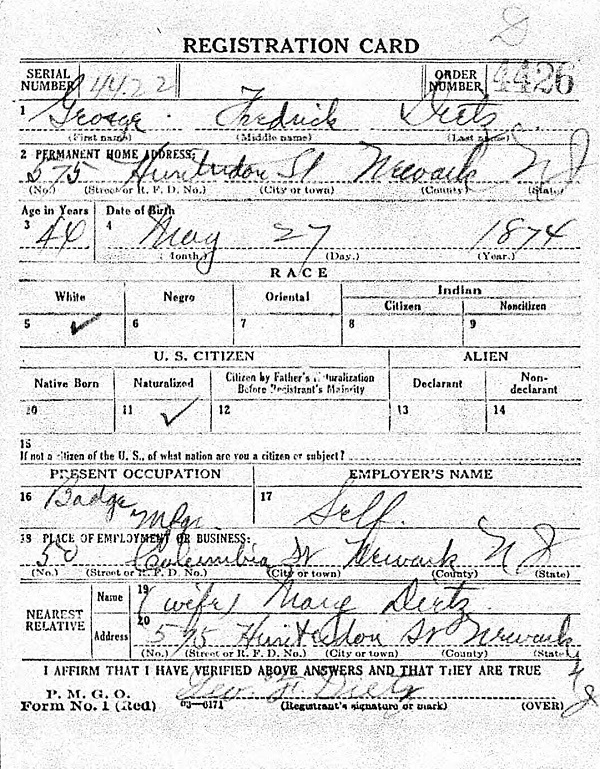 D
REGISTRATION CARD
SERIAL NUMBER 4422 ORDER NUMBER 4426
1 George Fredrick Dietz
(First name) (Middle name) (Last name)
2 PERMANENT HOME ADDRESS:
575 Hunterdon St Newark N J
(No.) (Street or R. F. D. No.) (City or town) (County) (State)
Age in Years Date of Birth
3 44 4 May 27 1874
(Month.) (Day.) (Year.)
RACE
White Negro Oriental Indian
Citizen Noncitizen
5 ✓ 6 7 8 9
U. S. CITIZEN ALIEN
Native Born Naturalized Citizen by Father's Naturalization Before Registrant's Majority Declarant Non-declarant
10 11 ✓ 12 13 14
15
If not a citizen of the U. S., of what nation are you a citizen or subject?
PRESENT OCCUPATION EMPLOYER'S NAME
16 Badge Mfgr. 17 Self.
18 PLACE OF EMPLOYMENT OR BUSINESS:
50 Columbia St Newark N J
(No.) (Street or R. F. D. No.) (City or town) (County) (State)
NEAREST RELATIVE Name 19 (wife) Mary Dietz
Address 20 575 Hunterdon St Newark N J
(No.) (Street or R. F. D. No.) (City or town) (County) (State)
I AFFIRM THAT I HAVE VERIFIED ABOVE ANSWERS AND THAT THEY ARE TRUE
P. M. G. O. Geo F. Dietz
Form No. 1 (Red) 03—6171 (Registrant's signature or mark) (OVER)